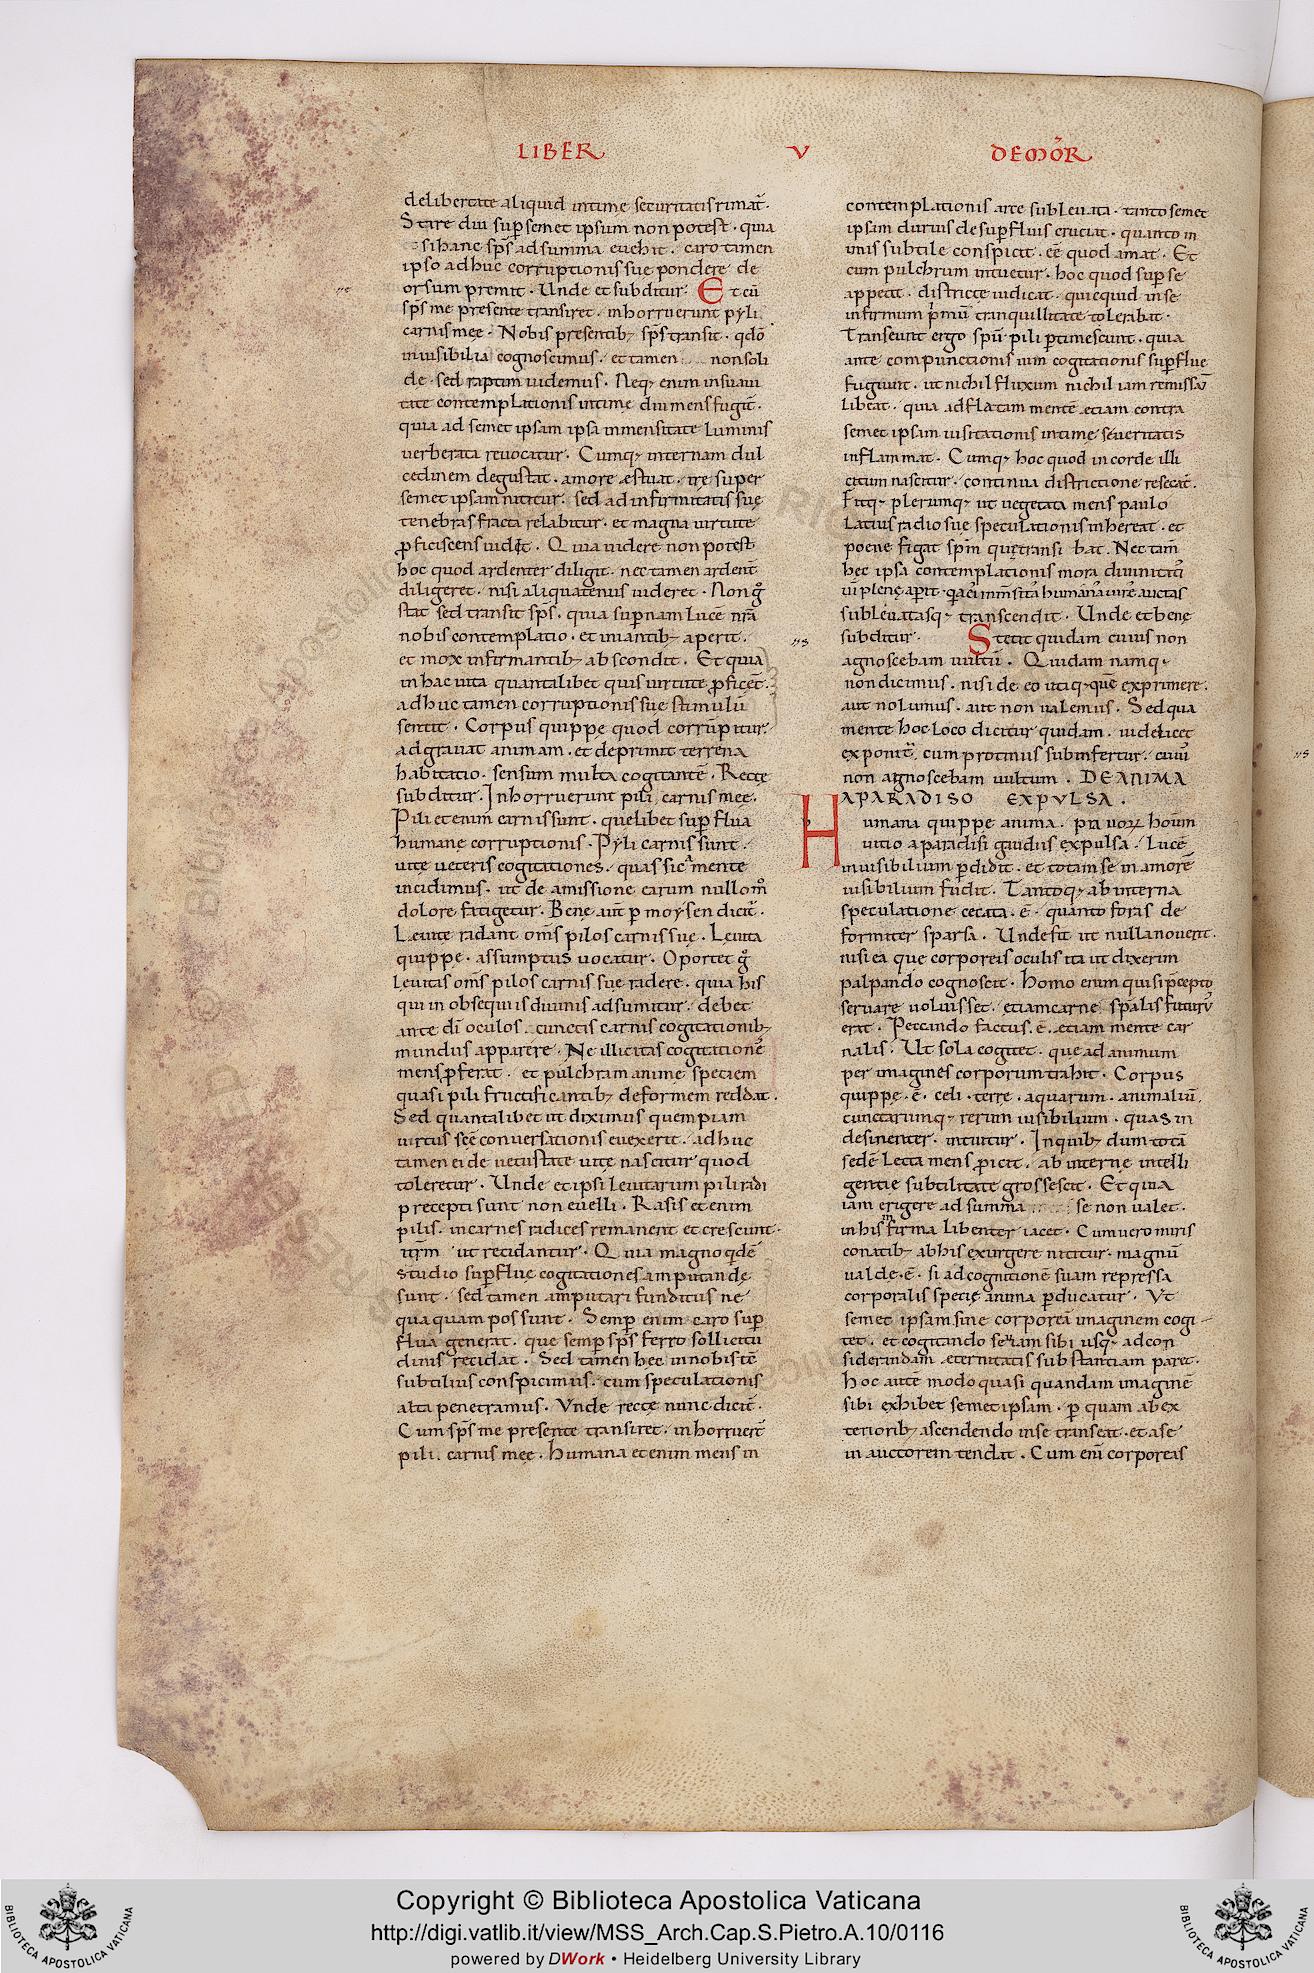 LIBER V DEMOR̄
deliberate aliquid intime securitatis rimat̄.
Stare diu sup̱ semet ipsum non potest. quia
& si hanc sp̄s ad summa euehit. caro tamen
ipso adhuc corruptionis sue pondere de
orsum premit. Unde et subditur. Et cū
sp̄s me presente transiret. inhorruerunt pyli
carnis meę. Nobis presentib; sp̄s transit. qdō
inuisibilia cognoscimus. et tamen non soli
de. sed raptim uidemus. Neq; enim in suaui
tate contemplationis intime diu mens fugit̄.
quia ad semet ipsam ipsa inmensitate luminis
uerberata reuocatur. Cumq; internam dul
cedinem degustat. amore ęstuat. ire super
semet ipsam nititur. sed ad infirmitatis suę
tenebras fracta relabitur. et magna uirtute
ꝓficiscens uidet. Quia uidere non potest
hoc quod ardenter diligit. nec tamen ardent̄
diligeret. nisi aliquatenus uideret. Non g̊
stat sed transit sp̄s. quia sup̱nam lucē nr̄a
nobis contemplatio. et iniantib; aperit.
et mox infirmantib; abscondit. Et quia
in hac uita quantalibet quis uirtute ꝓficęt̄.
adhuc tamen corruptionis sue stimulū
sentit. Corpus quippe quod corrūpitur.
adgrauat animam. et deprimit terrena
habitatio. sensum multa cogitantē. Recte
subditur. Inhorruerunt pili carnis meę.
Pili etenim carnis sunt. quelibet sup̱flua
humanę corruptionis. Pyli carnis sunt.
uitę ueteris cogitationes. quas sic a mente
incidimus. ut de amissione earum nullom̊
dolore fatigetur. Bene aut̄ p̱ moysen dicit̄.
Leuite radant om̄s pilos carnis suę. Leuita
quippe. assumptus uocatur. Oportet g̊
leuitas om̄s pilos carnis suę radere. quia his
qui in obsequiis diuinis adsumitur. debet
ante dī oculos cunctis carnis cogitationib;
mundus apparere. Ne illicitas cogitationes
mens ꝓferat. et pulchram anime speciem
quasi pili fructificantib; deformem reddat.
Sed quantalibet ut diximus quempiam
uirtus scē conuersationis euexerit. adhuc
tamen ei de uetustate uitę nascitur quod
toleretur. Unde et ipsi leuitarum pili radi
precepti sunt non euelli. Rasis etenim
pilis. in carnes radices remanent et crescunt.
iterm ut recidantur. Quia magno qdē
studio sup̱fluę cogitationes amputandę
sunt. sed tamen amputari funditus ne
quaquam possunt. Semp̱ enim caro sup̱
flua generat. que semp̱ sp̄s ferro sollicitu
dinis recidat. Sed tamen hec in nobis tc̄
subtilius conspicimus. cum speculationis
alta penetramus. Vnde recte nunc dicit̄.
Cum sp̄s me presente transiret. inhorruert̄
pili carnis meę. Humana etenim mens in
contemplationis arce subleuata. tanto semet
ipsam durius de sup̱fluis cruciat. quanto in
imis subtile conspicit. eē quod amat. Et
cum pulchrum intuetur. hoc quod sup̱ se
appetit. districte iudicat. quicquid in se
infirmum p̱mū tranquillitate tolerabat.
Transeunt ergo spū pili p̱timescunt. quia
ante compunctionis uim cogitationis sup̱fluę
fugiunt. ut nichil fluxum nichil iam remissū
libeat. quia adflatam mentē etiam contra
semet ipsam uisitationis intimę seueritatis
inflammat. Cumq; hoc quod in corde illi
citum nascitur. continua districtione resecat̄.
Fitq; plerumq; ut uegetata mens paulo
latius radio suę speculationis inhereat. et
poene figat sp̄m quę transi bat. Nec tam̄
hęc ipsa contemplationis mora diuinitatis
uī plenę aperit. quia ei inmensitas humana uire auctas
subleuatasq; transcendit. Unde et bene
subditur. Stetit quidam cuius non
agnoscebam uultū. Quidam namq;
non dicimus. nisi de eo utiq; quē exprimere
aut nolumus. aut non ualemus. Sed qua
mente hoc loco dicitur quidam. uidelicet
exponit̄. cum protinus subinfertur. cuius
non agnoscebam uultum. DE ANIMA
A PARADISO EXPVLSA.
Humana quippe anima. primorum hominum
uitio a paradisi gaudiis expulsa. lucē
inuisibilium p̱didit. et totam se in amorē
uisibilium fudit. Tantoq; ab interna
speculatione cecata. ē. quanto foris de
formiter sparsa. Unde fit ut nulla nouerit.
nisi ea que corporeis oculis ita ut dixerim
palpando cognoscit. Homo enim qui si p̱cepto
seruare uoluisset. etiam carne sp̄alis futurus
erat. Peccando factus. ē. etiam mente car
nalis. Ut sola cogitet. que ad animum
per imagines corporum trahit. Corpus
quippe. ē. celi. terre. aquarum. animaliū.
cunctarumq; rerum uisibilium. quas in
desinenter. intuitur. In quib; dum totā
sedē lecta mens ꝓicit. ab internę intelli
gentię subtilitate grossescit. Et quia
iam erigere ad summa se non ualet.
in his infirma libenter iacet. Cum uero miris
conatib; ab his exurgere nititur. magnū
ualde. ē. si ad cognitionē suam repressa
corporalis specię anima p̱ducatur. Vt
semet ipsam sine corporea imaginem cogi
tet. et cogitando se uiam sibi usq; ad con
siderandam ęternitatis substantiam paret.
Hoc autē modo quasi quandam imaginē
sibi exhibet semet ipsam. p̱ quam ab ex
teriorib; ascendendo in se transeat. et a se
in auctorem tendat. Cum enī corporeas
Copyright © Biblioteca Apostolica Vaticana
http://digi.vatlib.it/view/MSS_Arch.Cap.S.Pietro.A.10/0116
powered by DWork • Heidelberg University Library
BIBLIOTECA APOSTOLICA VATICANA
BIBLIOTECA APOSTOLICA VATICANA